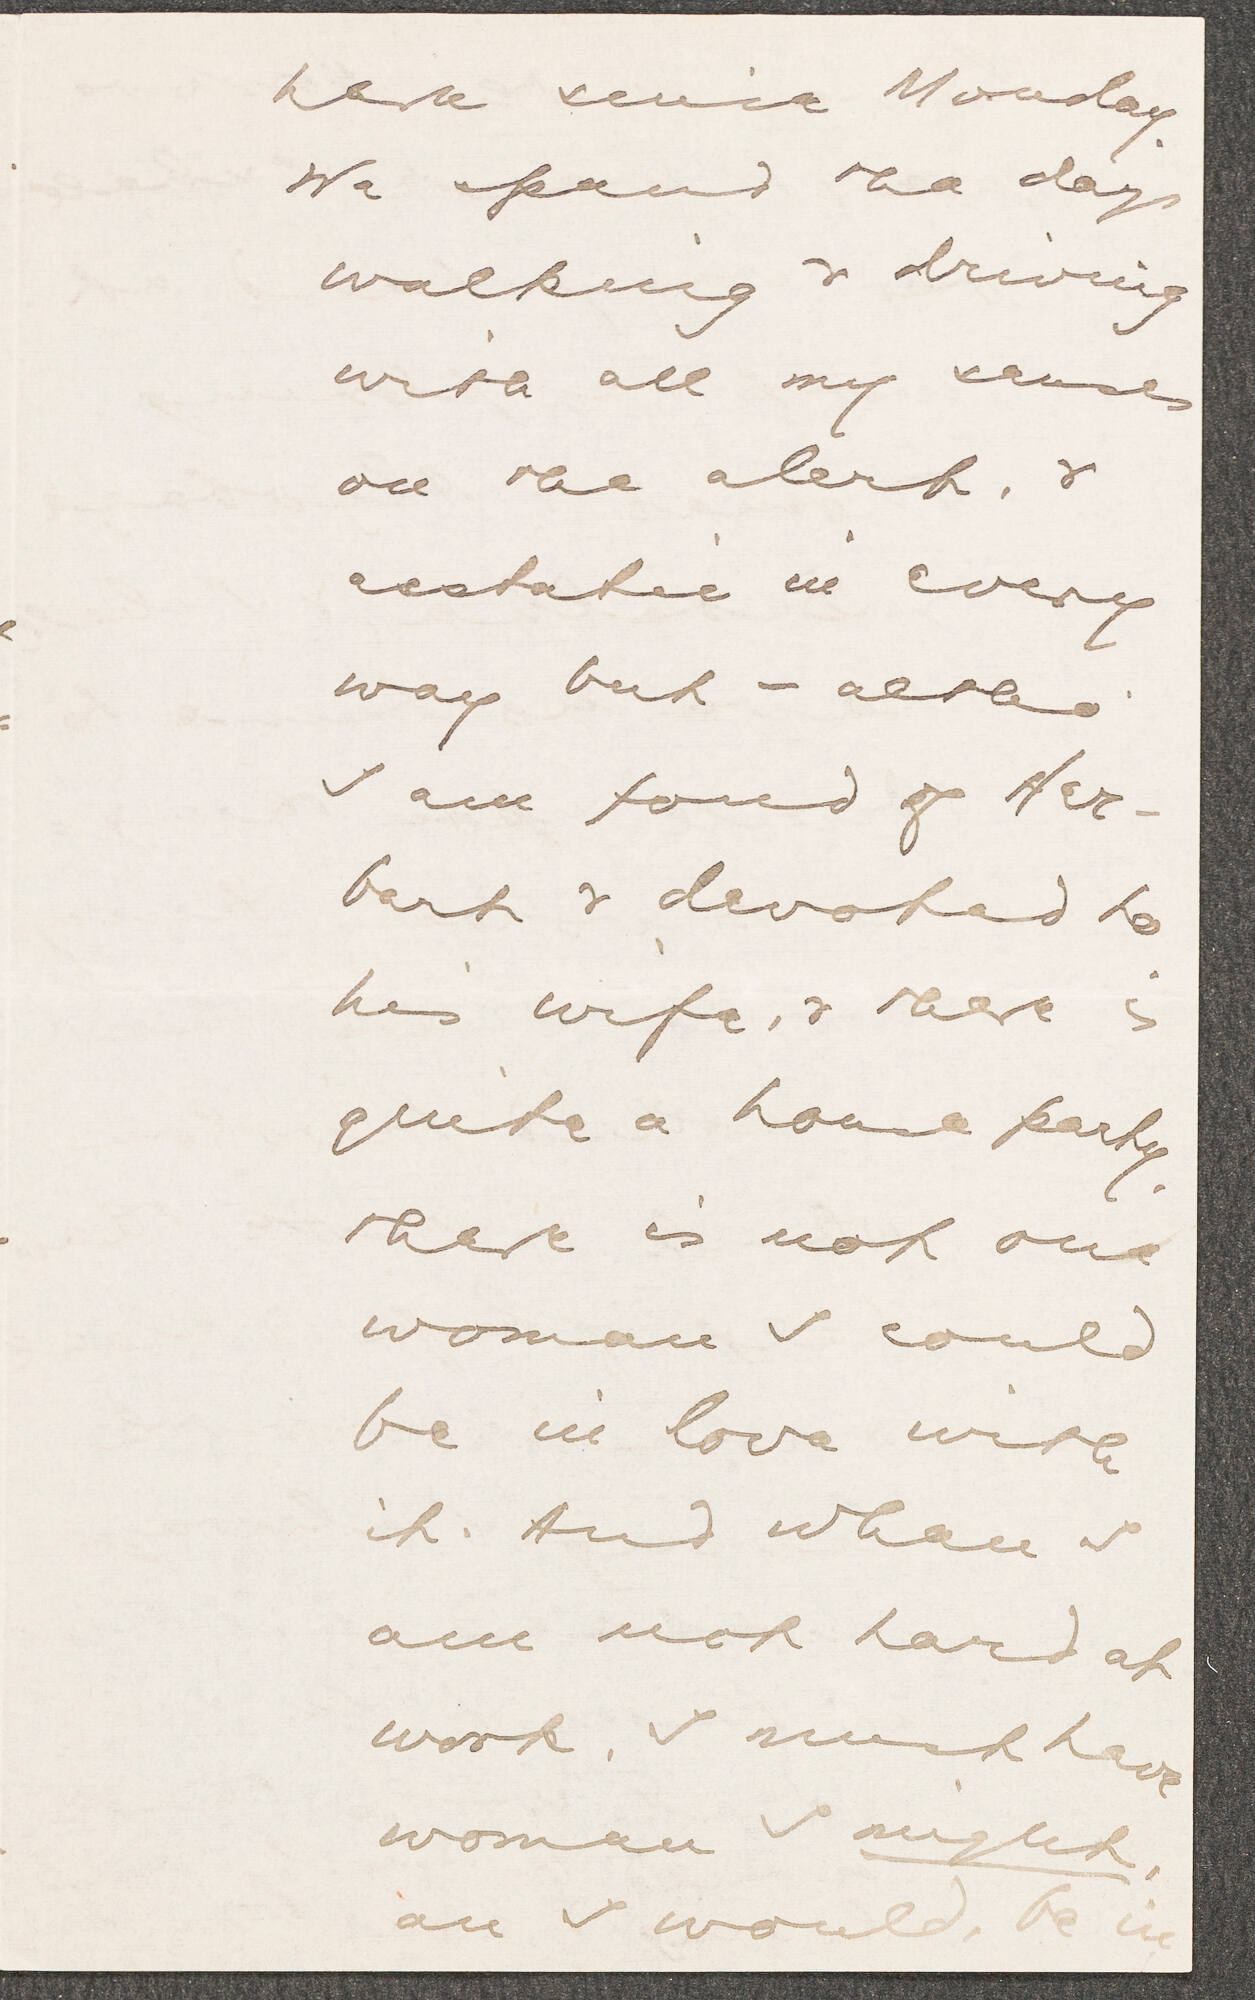 here since Monday.
We spend the days
walking & driving
with all my senses
on the alert, &
ecstatic in every
way but – altho'
I am fond of Her-
bert & devoted to
his wife, & there is
quite a house party,
there is not one
woman I could
be in love with
it. And when I
am not hard at
work, I must have
woman I might,
an I would, be in